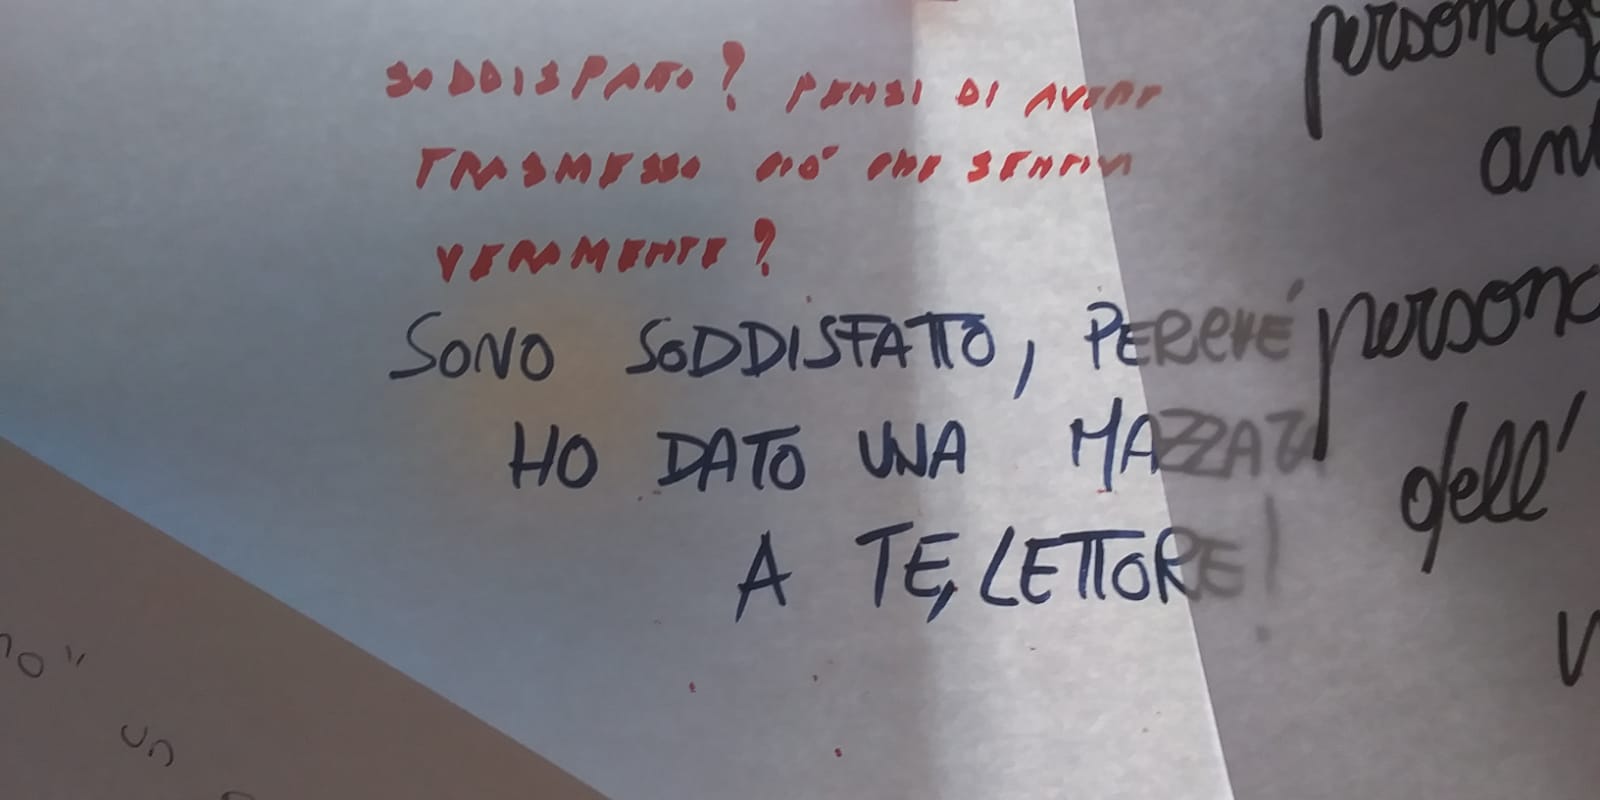 SODDISFATTO? PENSI DI AVERE
TRASMESSO CIÒ CHE SENTIVI
VERAMENTE?
SONO SODDISFATTO, PERCHÉ
HO DATO UNA MAZZATA
A TE, LETTORE!
dell'
un